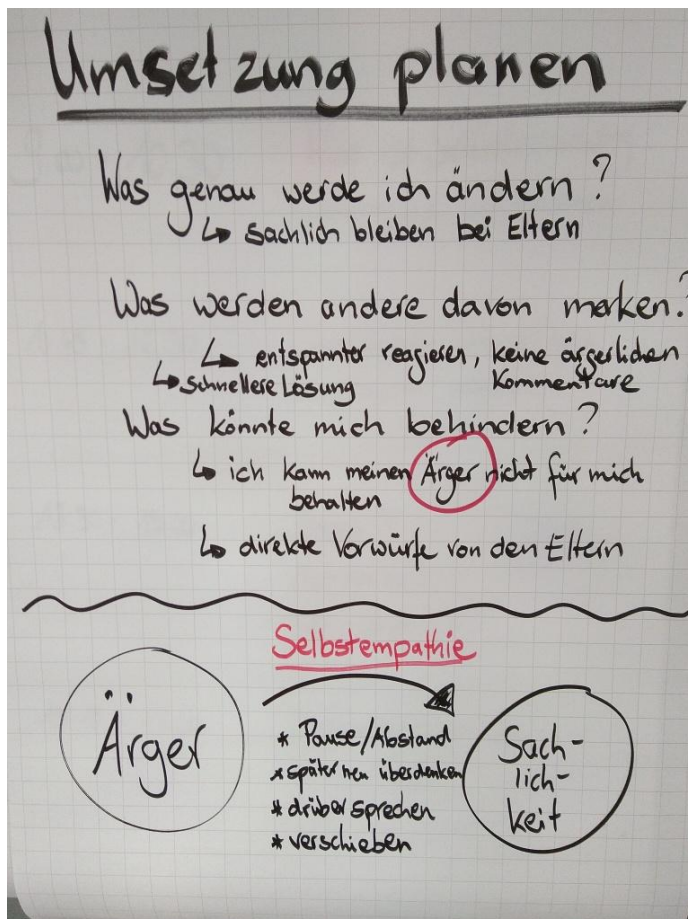 Umsetzung planen
Was genau werde ich ändern?
↳ sachlich bleiben bei Eltern
Was werden andere davon merken?
↳ entspannter reagieren, keine ärgerlichen
Kommentare
↳ schnellere Lösung
Was könnte mich behindern?
↳ ich kann meinen Ärger nicht für mich
behalten
↳ direkte Vorwürfe von den Eltern
Selbstempathie
Ärger
* Pause/Abstand
* später neu überdenken
* drüber sprechen
* verschieben
Sach-
lich-
keit